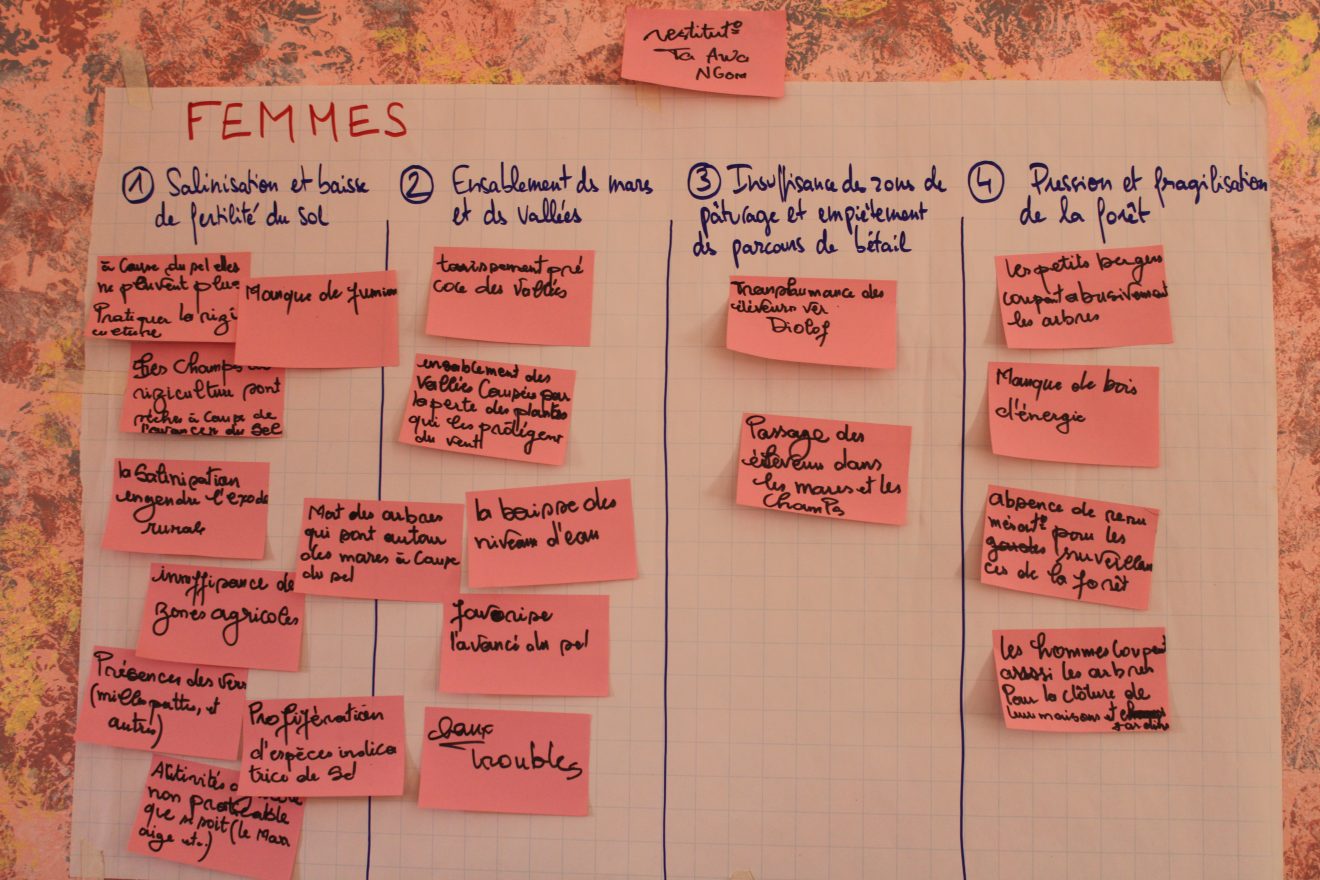 restitutº
Ta Awa
NGom
FEMMES
① Salinisation et baisse
de fertilité du sol
à Cause du sel elles
ne peuvent plus
Pratiquer la rizi
culture
Manque de fumier
Les Champs de
riziculture sont
sèches à Cause de
l'avancer du Sel
la Salinisation
engendre l'exode
rurale
insuffisance de
Zones agricoles
Présences des vers
(mille pattes, et
autres)
Prolifération
d'espèces indica
trice de Sel
Activités
non praticable
que se soit (le Mara
aige etc.)
② Ensablement ds mares
et ds vallées
tarissement pré
coce des Vallées
ensablement des
Vallées Causées par
la perte des plantes
qui les protègent
du vent
Mort des arbres
qui sont autour
des mares à Cause
du sel
la baisse des
niveau d'eau
favorise
l'avancé du sel
eaux
troubles
③ Insuffisance des zones de
pâturage et empiètement
ds parcours de bétail
Transhumance des
éleveurs ver
Diolof
Passage des
éleveurs dans
les mares et les
Champs
④ Pression et fragilisation
de la forêt
les petits bergers
coupent abusivement
les arbres
Manque de bois
d'énergie
absence de rému
nératº pour les
surveillan
ces de la forêt
les hommes Coupent
aussi les arbres
Pour la clôture de
leurs maisons et
jardins